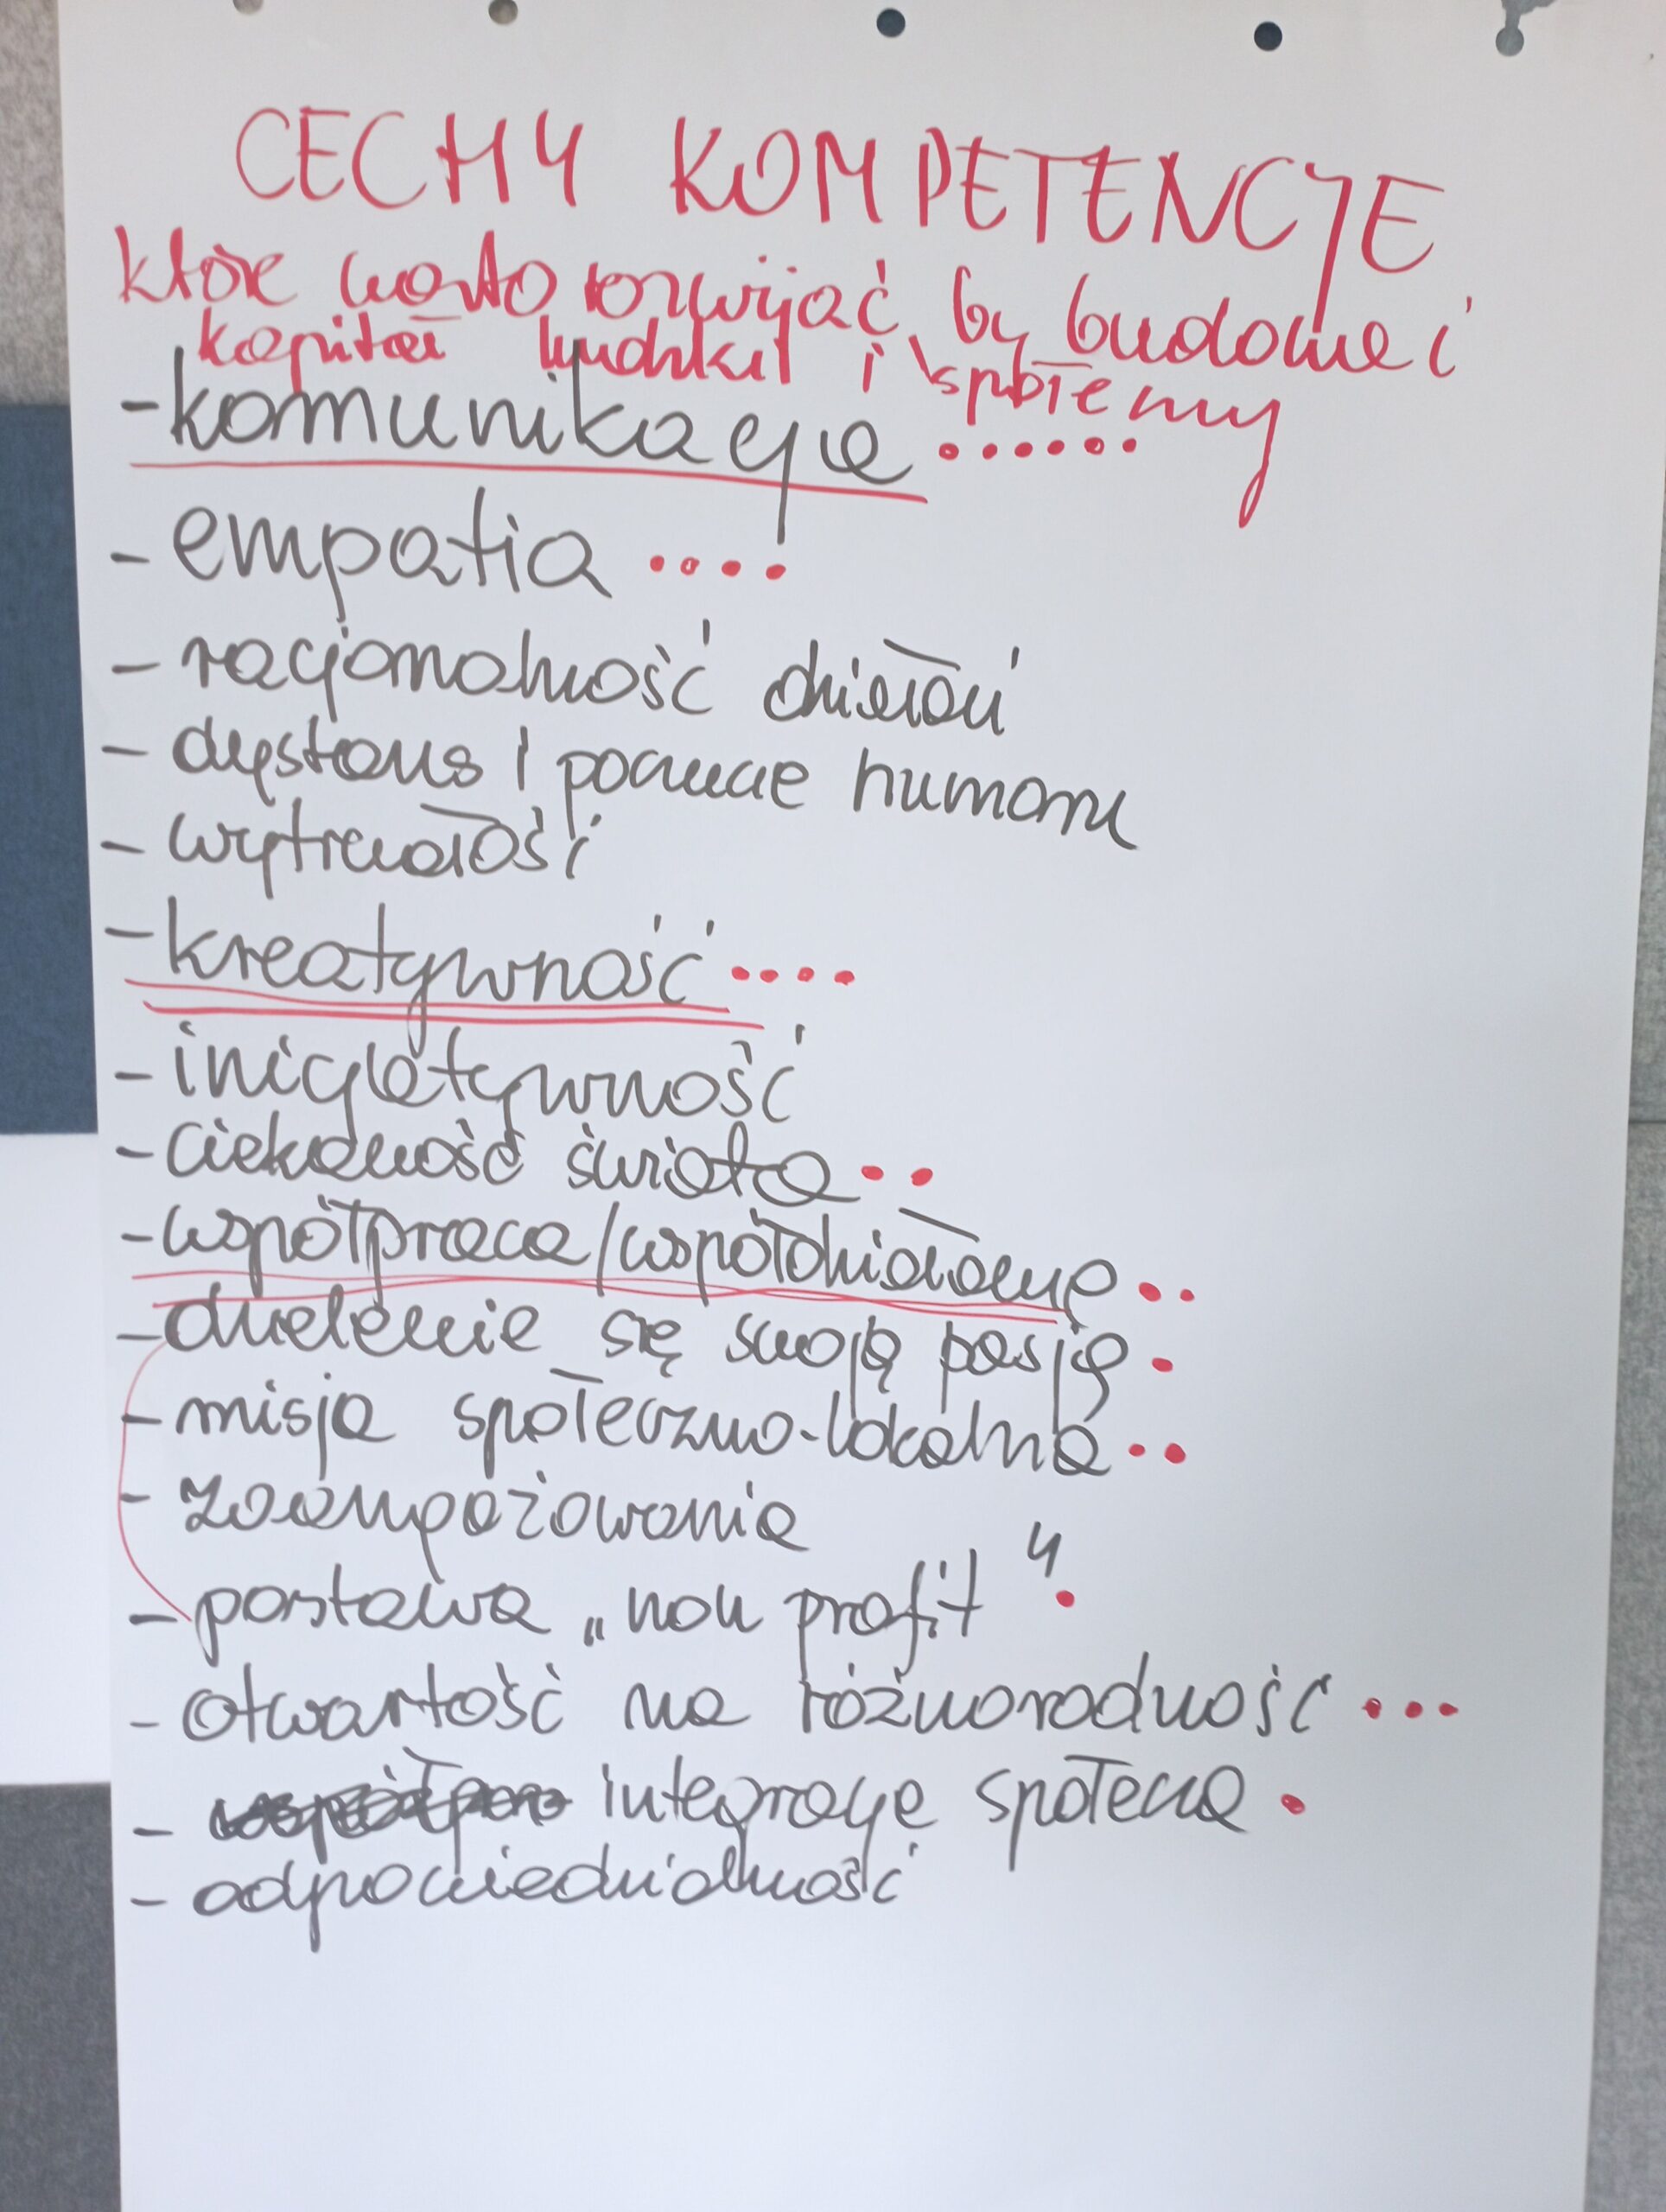 CECHY KOMPETENCJE
które warto rozwijać, by budować
kapitał ludzki i społeczny
- komunikacja ......
- empatia ....
- racjonalność działań
- dystans i poczucie humoru
- wytrwałość
- kreatywność ....
- inicjatywność
- ciekawość świata ..
- współpraca/współdziałanie ..
- dzielenie się swoją pasją .
- misja społeczno-lokalna ..
- zaangażowanie
- postawa „non profit" .
- otwartość na różnorodność ...
- integracja społeczna .
- odpowiedzialność